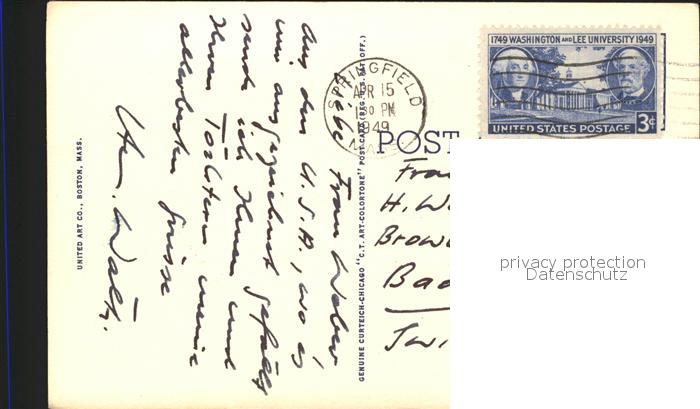 Liebe Frau Weber
Aus den U.S.A., wo es
mir ausgezeichnet gefällt
sende ich Ihnen und
Ihren Töchtern meine
allerbesten Grüsse
UNITED ART CO., BOSTON, MASS.
GENUINE CURTEICH-CHICAGO "C.T. ART-COLORTONE" POST CARD (REG. U.S. PAT. OFF.)
SPRINGFIELD
APR 15
30 PM
1949
MASS.
1749 WASHINGTON AND LEE UNIVERSITY 1949
UNITED STATES POSTAGE 3¢
POST
Frau
H. W
Brow
Bad
Swi
privacy protection
Datenschutz